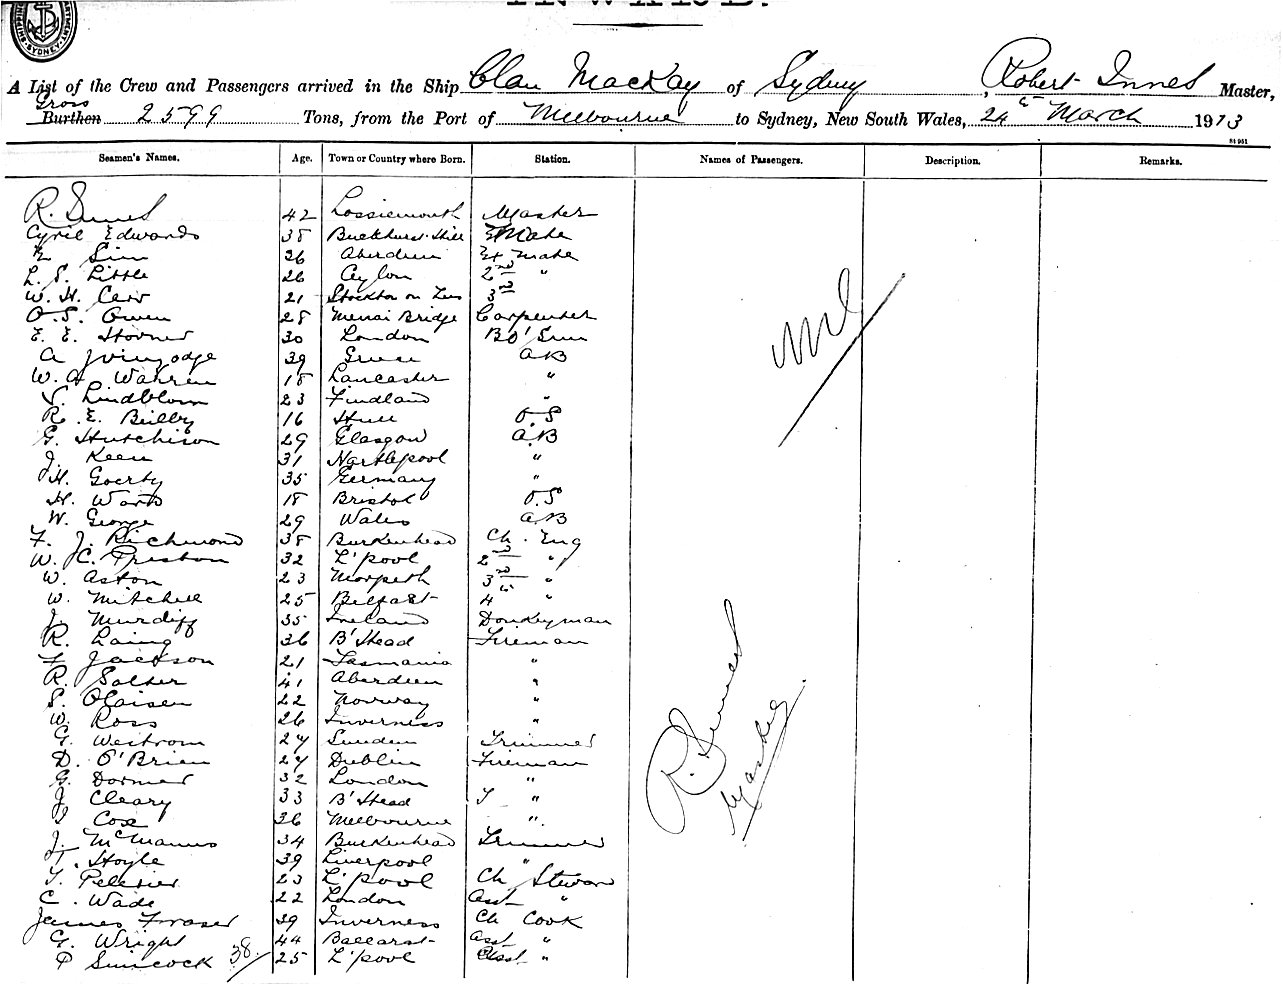 INWARD.
SYDNEY
A List of the Crew and Passengers arrived in the Ship Clan MacKay of Sydney, Robert Innes Master,
Gross
Burthen 2599 Tons, from the Port of Melbourne to Sydney, New South Wales, 24th March 1913
84951
Seamen's Names. Age. Town or Country where Born. Station. Names of Passengers. Description. Remarks.
R. Innes 42 Lossiemouth Master
Cyril Edwards 38 Buckhurst Hill Mate
Sim 26 Aberdeen Ex Mate
L. S. Little 26 Ceylon 2nd "
W. H. Carr 21 Stockton on Tees 3rd
O. S. Owen 28 Menai Bridge Carpenter
E. E. Stovner 30 London BO'Sun
A 39 Greece AB
W. A. Warren 18 Lancaster "
V. Lindblom 23 Findland "
R. E. Beilby 16 Hull O.S
G. Hutchison 29 Glasgow A.B
J. Keen 31 Hartlepool "
H. Goerty 35 Germany "
H. Warts 18 Bristol O.S
W. George 29 Wales A.B
F. J. Richmond 38 Burkenhead Ch. Eng
W. C. Preston 32 L'pool 2nd "
W. Aston 23 Morpeth 3rd "
W. Mitchell 25 Belfast 4th "
J. Murdiff 35 Ireland Donkeyman
R. Laing 36 B'Head Fireman
F Jackson 21 Tasmania "
R. Salter 41 Aberdeen "
S. Olaisen 22 Norway "
W. Ross 26 Inverness "
G. Westrom 27 Sweden Trimmer
D. O'Brien 27 Dublin Fireman
G. Dormer 32 London "
J. Cleary 33 B'Head T "
Cox 36 Melbourne "
J. McManus 34 Burkenhead Trimmer
T. Hoyle 39 Liverpool "
T. Peletier 23 L'pool Ch Steward
C. Wade 22 London Asst "
James Fraser 39 Inverness Ch Cook
G. Wright 44 Ballarat Asst "
P Simcock 38 25 L'pool Asst "
Nil
R. Innes
Master